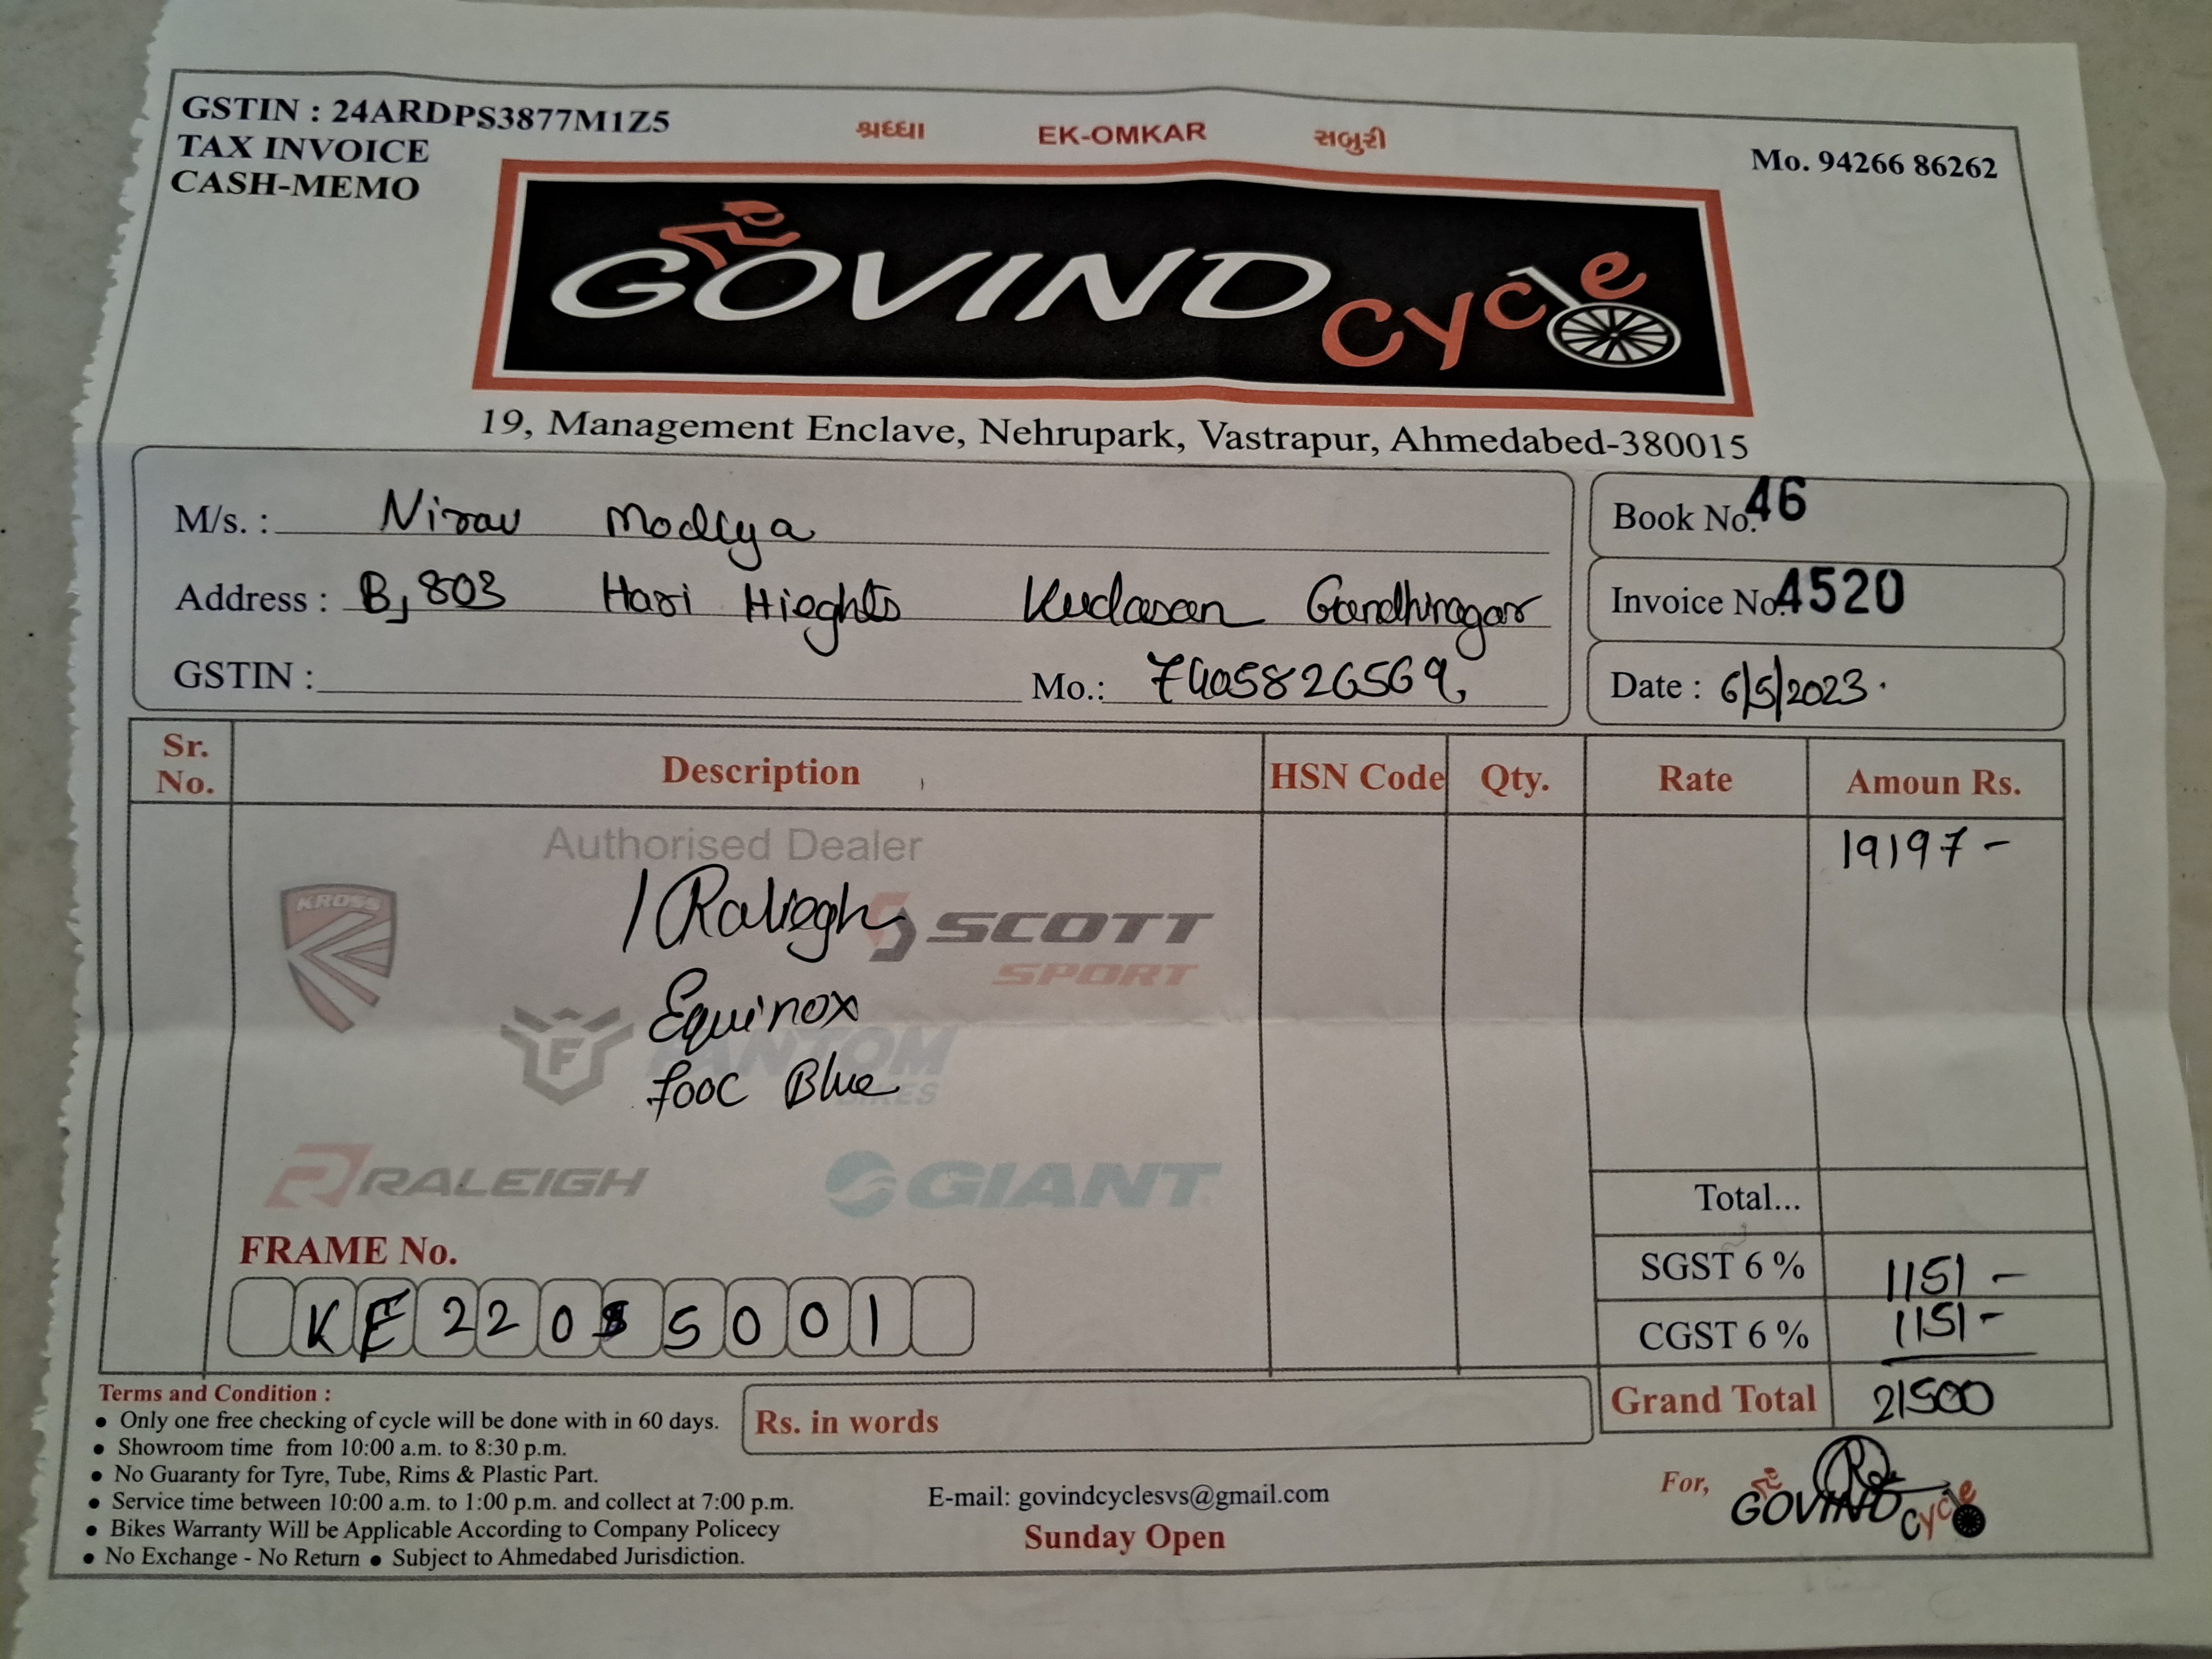 GSTIN : 24ARDPS3877M1Z5
TAX INVOICE
CASH-MEMO
શ્રધ્ધા EK-OMKAR સબુરી
Mo. 94266 86262
GOVIND Cycle
19, Management Enclave, Nehrupark, Vastrapur, Ahmedabed-380015
M/s. : Nirav Modiya
Address : B, 803 Hari Hieghts Kudasan Gandhinagar
GSTIN : Mo.: 7405826569
Book No. 46
Invoice No. 4520
Date : 6/5/2023.
Sr. No. Description HSN Code Qty. Rate Amoun Rs.
Authorised Dealer
19197 -
1 Raliegh
KROSS
SCOTT
SPORT
Equinox
FANTOM
BIKES
700C Blue
RALEIGH GIANT
Total...
FRAME No.
KE220 5001
SGST 6 % 1151 -
CGST 6 % 1151 -
Grand Total 21500
Rs. in words
Terms and Condition :
• Only one free checking of cycle will be done with in 60 days.
• Showroom time from 10:00 a.m. to 8:30 p.m.
• No Guaranty for Tyre, Tube, Rims & Plastic Part.
• Service time between 10:00 a.m. to 1:00 p.m. and collect at 7:00 p.m.
• Bikes Warranty Will be Applicable According to Company Policecy
• No Exchange - No Return • Subject to Ahmedabed Jurisdiction.
E-mail: govindcyclesvs@gmail.com
Sunday Open
For, GOVIND Cycle